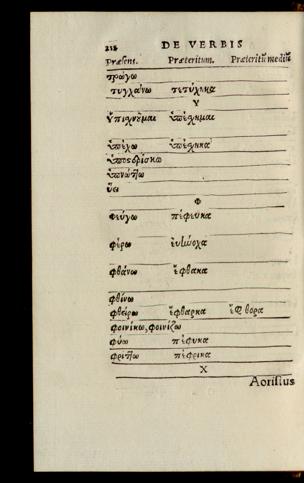 212 DE VERBIS
Præsens. Præteritum. Præteritũ mediũ
τρώγω
τυγχάνω τετύχηκα
Υ
ὑπισχνέμαι ὑπέχημαι
ὑπέχω ὑπέχηκα
ὑποςορίσκω
ὑπνώτ]ω
ὕει
Φ
φεύγω πέφευκα
φέρω
φθάνω ἔφθακα
φθίνω
φθείρω ἔφθαρκα ἔφθορα
φοινίκω, φοινίζω
φύω πέφυκα
φρίτ]ω πέφρικα
Χ
Aoristus